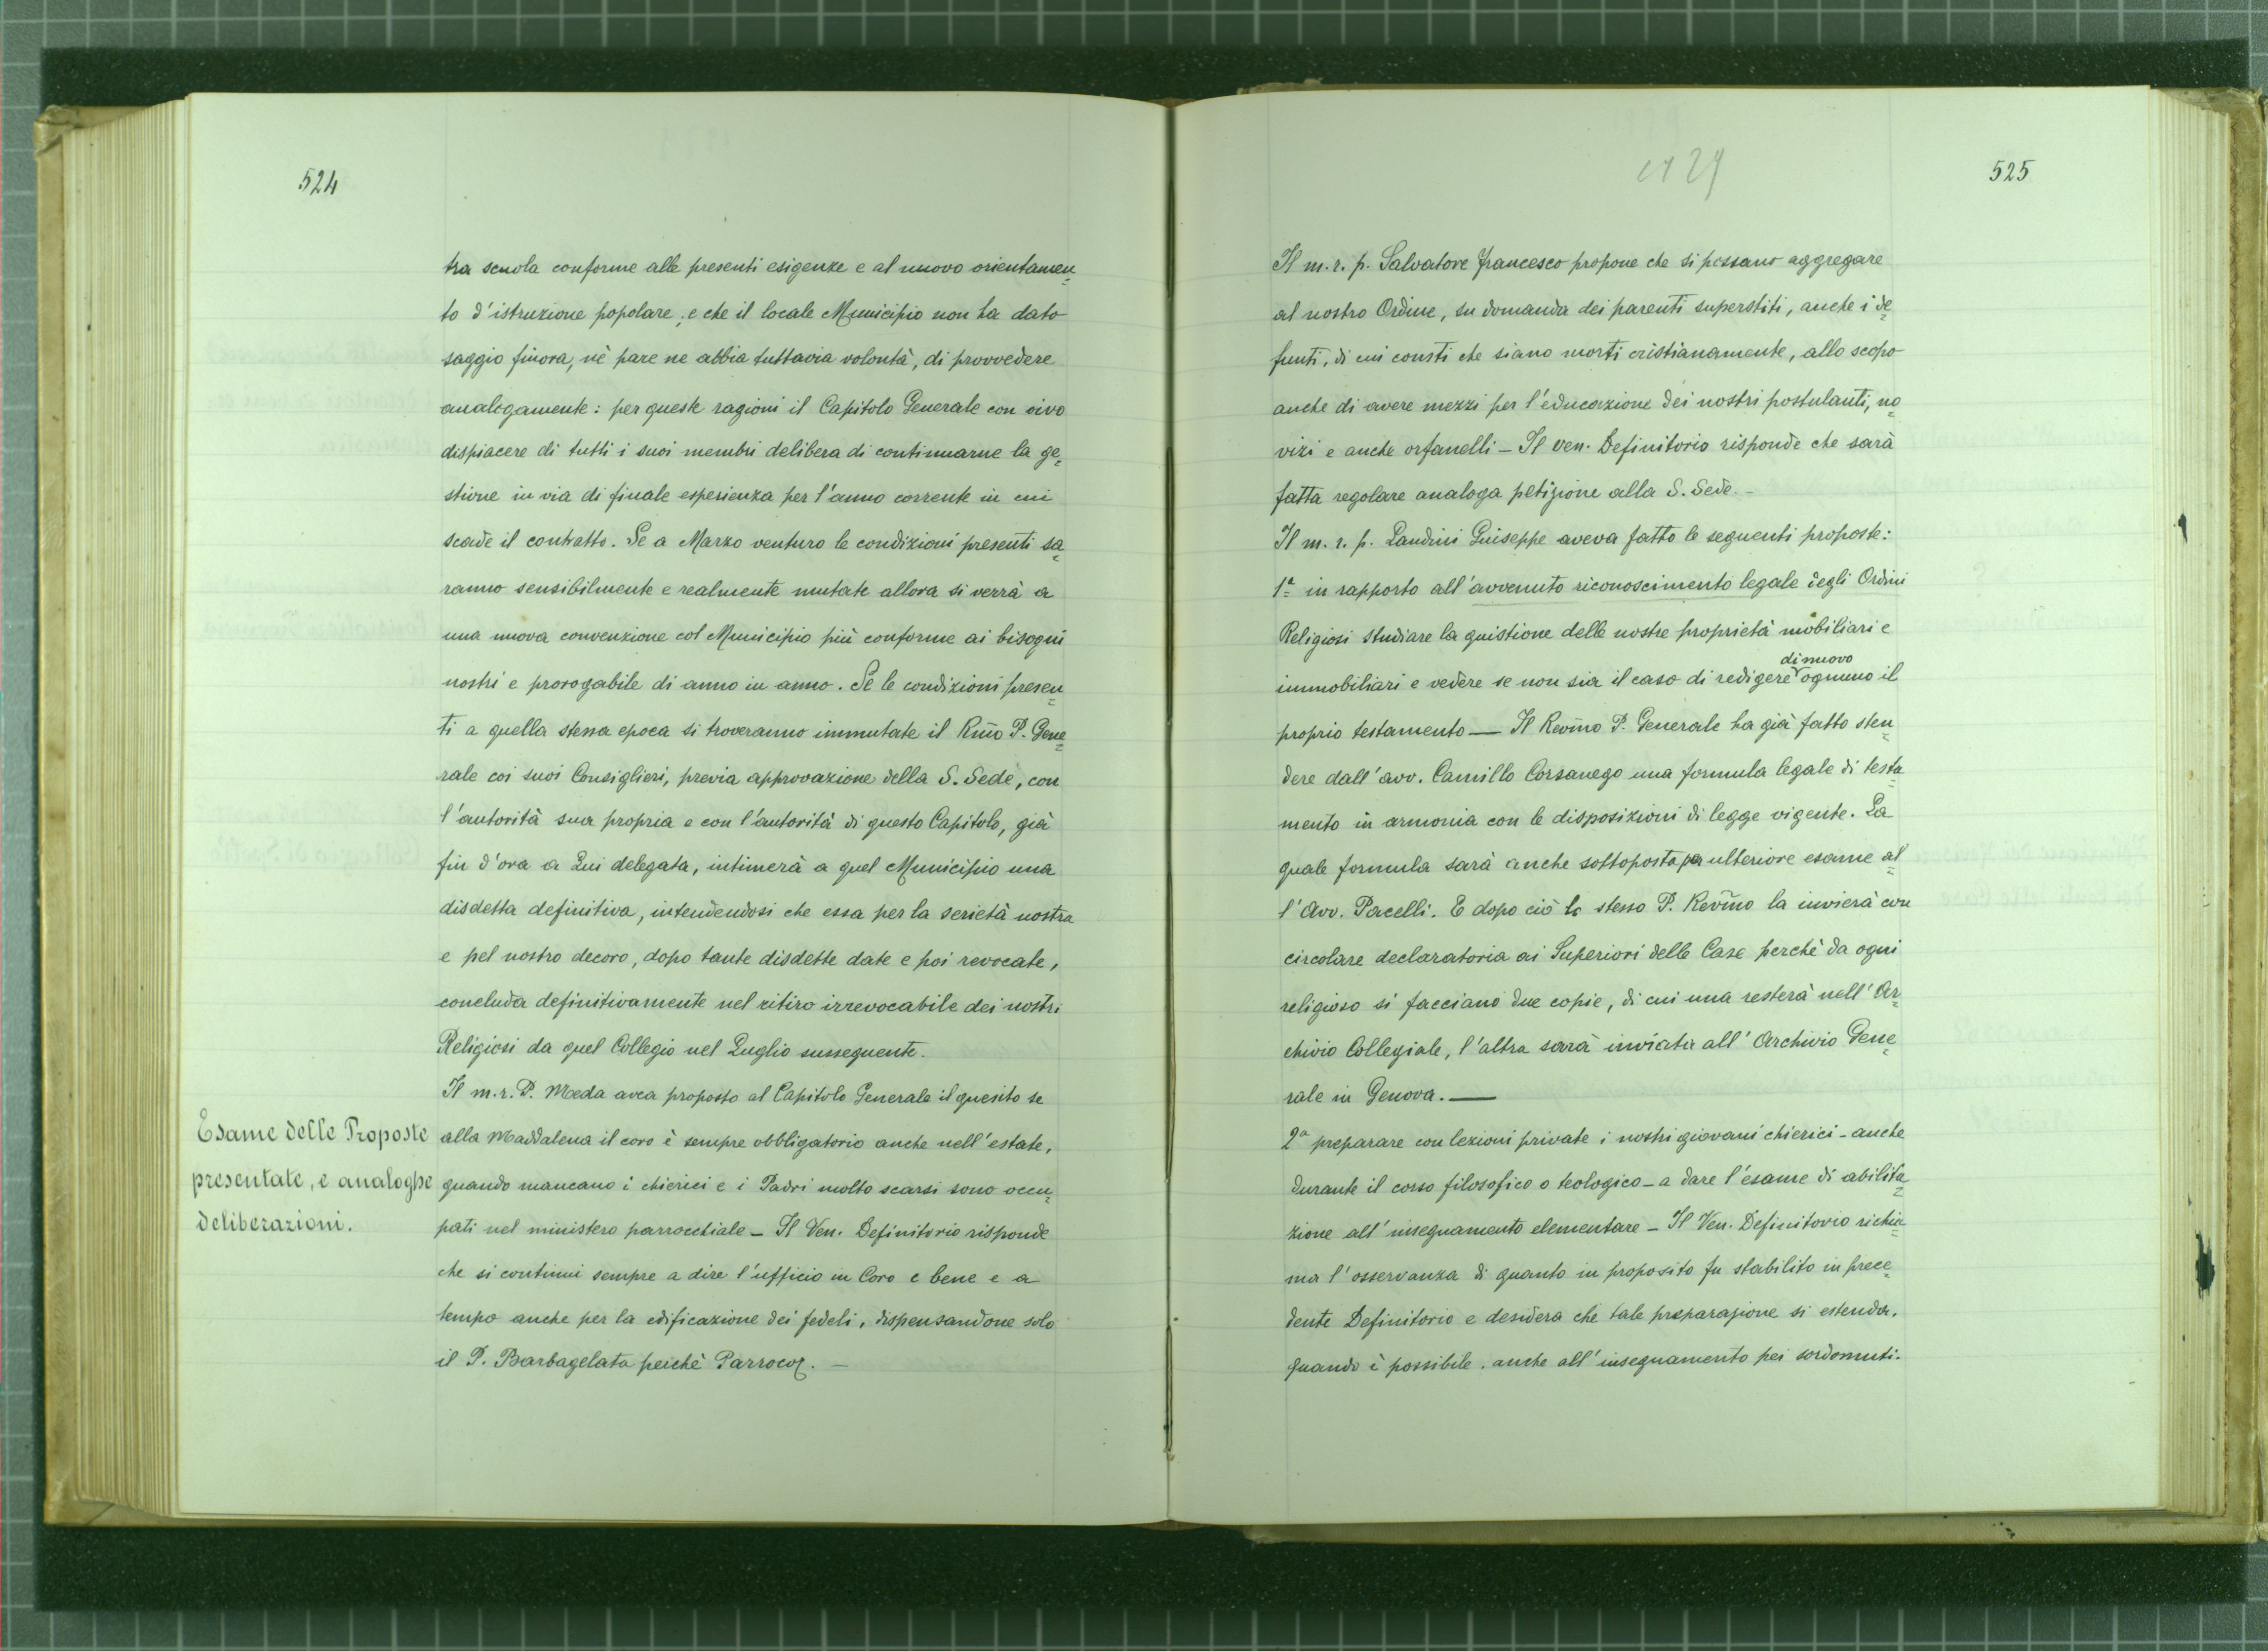 524
tra scuola conforme alle presenti esigenze e al nuovo orientamen=
to d'istruzione popolare; e che il locale Municipio non ha dato
saggio finora, nè pare ne abbia tuttavia volontà, di provvedere
analogamente: per queste ragioni il Capitolo Generale con vivo
dispiacere di tutti i suoi membri delibera di continuarne la ge=
stione in via di finale esperienza per l'anno corrente in cui
scade il contratto. Se a Marzo venturo le condizioni presenti sa=
ranno sensibilmente e realmente mutate allora si verrà a
una nuova convenzione col Municipio più conforme ai bisogni
nostri e prorogabile di anno in anno. Se le condizioni presen=
ti a quella stessa epoca si troveranno immutate il Rmo P. Gene=
rale coi suoi Consiglieri, previa approvazione della S. Sede, con
l'autorità sua propria e con l'autorità di questo Capitolo, già
fin d'ora a Lui delegata, intimerà a quel Municipio una
disdetta definitiva, intendendosi che essa per la serietà nostra
e pel nostro decoro, dopo tante disdette date e poi revocate,
concluda definitivamente nel ritiro irrevocabile dei nostri
Religiosi da quel Collegio nel Luglio susseguente.
Il m.r.P. Meda avea proposto al Capitolo Generale il quesito se
Esame delle Proposte
presentate, e analoghe
deliberazioni.
alla Maddalena il coro è sempre obbligatorio anche nell'estate,
quando mancano i chierici e i Padri molto scarsi sono occu=
pati nel ministero parrocchiale - Il Ven. Definitorio risponde
che si continui sempre a dire l'ufficio in Coro e bene e a
tempo anche per la edificazione dei fedeli, dispensandone solo
il P. Barbagelata perchè Parroco. -
525
Il m. r. p. Salvatore Francesco propone che si possano aggregare
al nostro Ordine, su domanda dei parenti superstiti, anche i de=
funti, di cui consti che siano morti cristianamente, allo scopo
anche di avere mezzi per l'educazione dei nostri postulanti, no=
vizi e anche orfanelli - Il ven. Definitorio risponde che sarà
fatta regolare analoga petizione alla S. Sede. -
Il m. r. p. Landini Giuseppe aveva fatto le seguenti proposte:
1ª in rapporto all'avvenuto riconoscimento legale degli Ordini
Religiosi studiare la quistione delle nostre proprietà mobiliari e
di nuovo
immobiliari e vedere se non sia il caso di redigere ognuno il
proprio testamento — Il Revmo P. Generale ha già fatto sten=
dere dall'avv. Camillo Corsanego una formula legale di testa=
mento in armonia con le disposizioni di legge vigente. La
quale formula sarà anche sottoposta per ulteriore esame al=
l'Avv. Pacelli. E dopo ciò lo stesso P. Revmo la invierà con
circolare declaratoria ai Superiori delle Case perchè da ogni
religioso si facciano due copie, di cui una resterà nell'Ar=
chivio Collegiale, l'altra sarà inviata all'Archivio Gene=
rale in Genova. —
2ª preparare con lezioni private i nostri giovani chierici - anche
durante il corso filosofico o teologico - a dare l'esame di abilita=
zione all'insegnamento elementare - Il Ven. Definitorio richia=
ma l'osservanza di quanto in proposito fu stabilito in prece=
dente Definitorio e desidera che tale preparazione si estenda,
quando è possibile, anche all'insegnamento pei sordomuti.